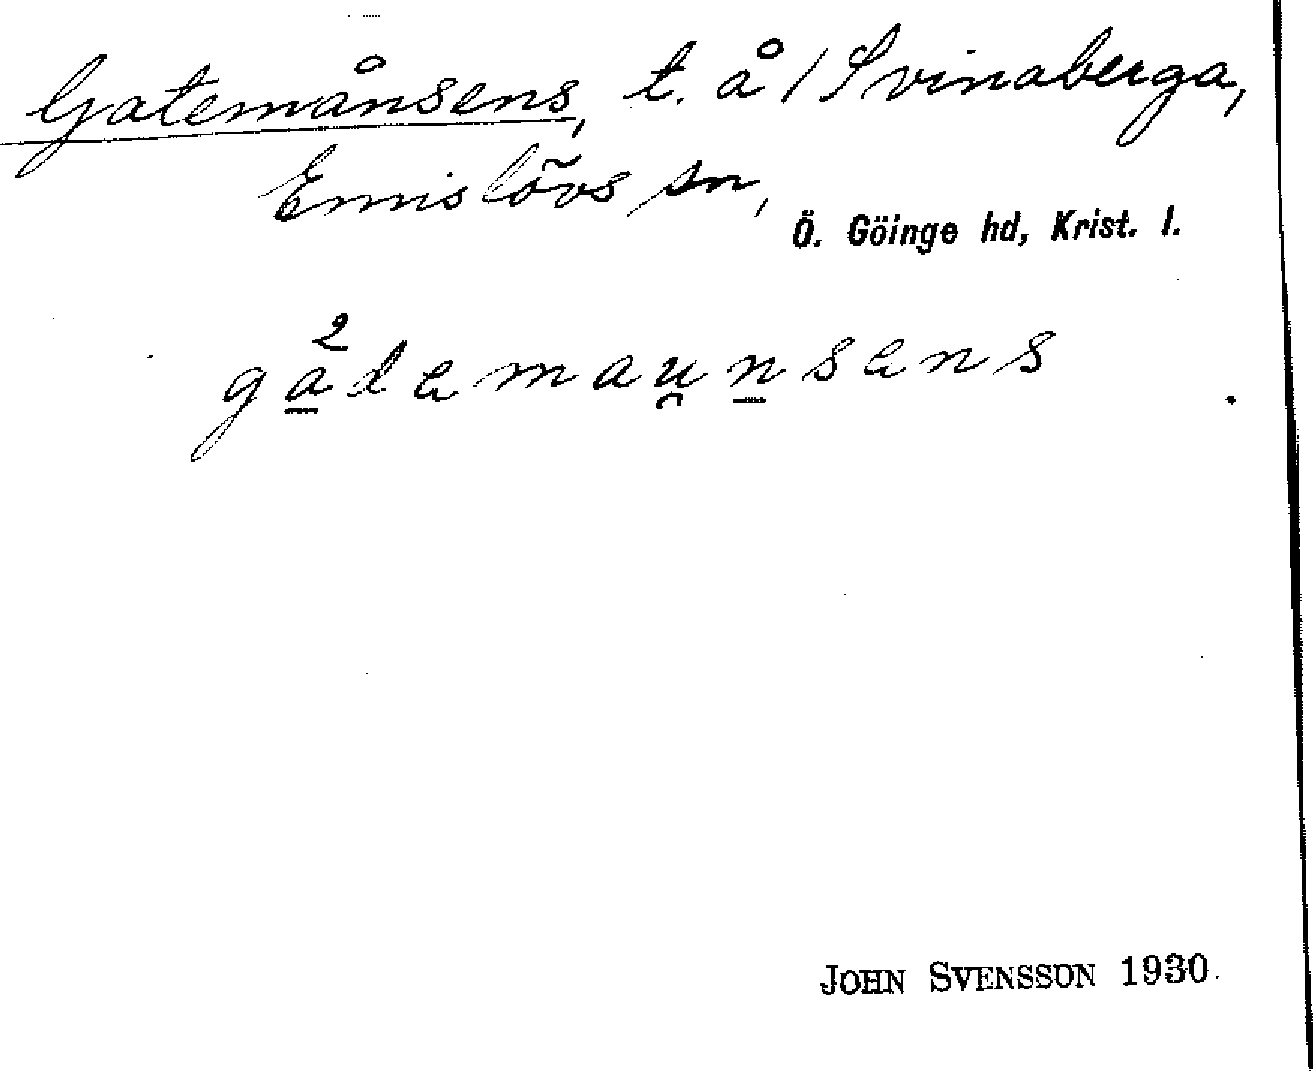 Gatemånsens, t. å / Svinaberga,
Emislövs sn,
Ö. Göinge hd, Krist. l.
ga̱²demau̯ṉsens
JOHN SVENSSON 1930.